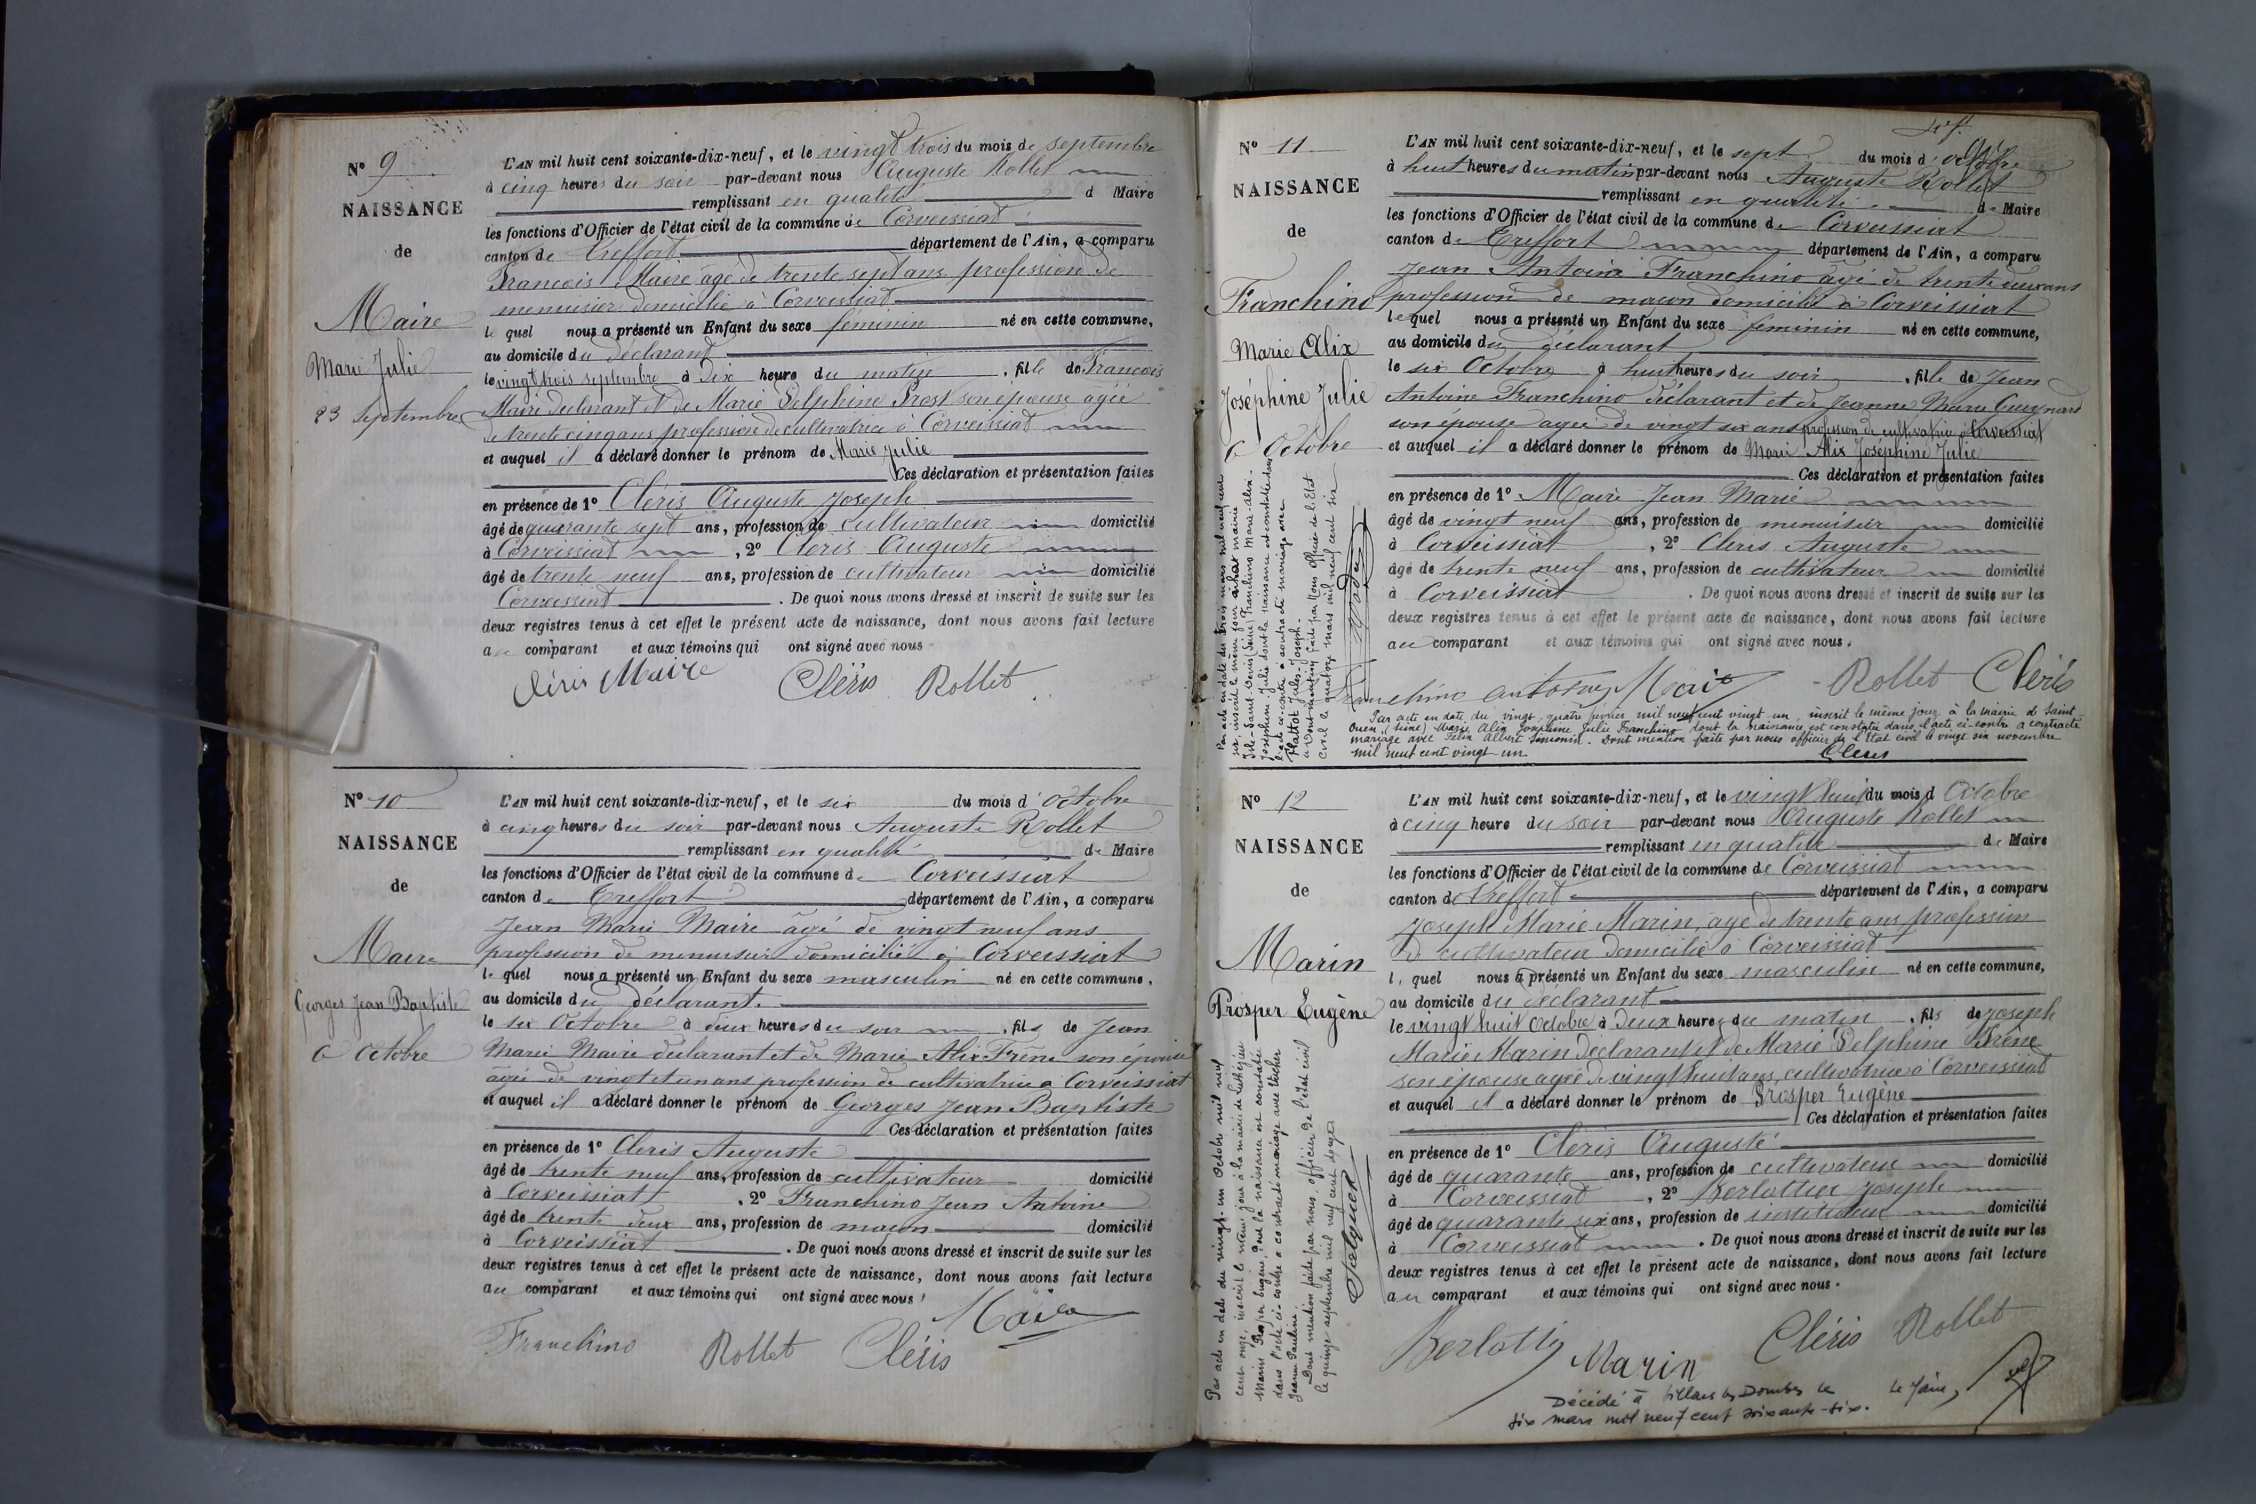 Nº 9
NAISSANCE
de
Maire
Marie Julie
23 Septembre
L'AN mil huit cent soixante-dix-neuf, et le vingt trois du mois de septembre
à cinq heures du soir par-devant nous Auguste Rollet
remplissant en qualité de Maire
les fonctions d'Officier de l'état civil de la commune de Corveissiat
canton de Treffort département de l'Ain, a comparu
Francois Maire âgé de trente sept ans profession de
menuisier domicilié à Corveissiat
le quel nous a présenté un Enfant du sexe féminin né en cette commune,
au domicile du déclarant
le vingt trois septembre à dix heure du matin, fille de Francois
Maire déclarant et de Marie Delphine Prost son épouse âgée
de trente cinq ans profession de cultivatrice à Corveissiat
et auquel il a déclaré donner le prénom de Marie Julie
Ces déclaration et présentation faites
en présence de 1º Cléris Auguste Joseph
âgé de quarante sept ans, profession de cultivateur domicilié
à Corveissiat, 2º Cléris Auguste
âgé de trente neuf ans, profession de cultivateur domicilié
Corveissiat. De quoi nous avons dressé et inscrit de suite sur les
deux registres tenus à cet effet le présent acte de naissance, dont nous avons fait lecture
au comparant et aux témoins qui ont signé avec nous
Cléris Maire Cléris Rollet
Nº 10
NAISSANCE
de
Maire
Georges Jean Baptiste
6 Octobre
L'AN mil huit cent soixante-dix-neuf, et le six du mois d'Octobre
à cinq heures du soir par-devant nous Auguste Rollet
remplissant en qualité de Maire
les fonctions d'Officier de l'état civil de la commune de Corveissiat
canton de Treffort département de l'Ain, a comparu
Jean Marie Maire âgé de vingt neuf ans
profession de menuisier domicilié à Corveissiat
le quel nous a présenté un Enfant du sexe masculin né en cette commune,
au domicile du déclarant.
le six Octobre à deux heures du soir, fils de Jean
Marie Maire déclarant et de Marie Alix Frêne son épouse
âgée de vingt et un ans profession de cultivatrice à Corveissiat
et auquel il a déclaré donner le prénom de Georges Jean Baptiste
Ces déclaration et présentation faites
en présence de 1º Cleris Auguste
âgé de trente neuf ans, profession de cultivateur domicilié
à Corveissiat, 2º Franchino Jean Antoine
âgé de trente deux ans, profession de maçon domicilié
à Corveissiat. De quoi nous avons dressé et inscrit de suite sur les
deux registres tenus à cet effet le présent acte de naissance, dont nous avons fait lecture
au comparant et aux témoins qui ont signé avec nous
Franchino Rollet Cléris Maire
Nº 11
NAISSANCE
de
Franchino
Marie Alix
Joséphine Julie
6 Octobre
L'AN mil huit cent soixante-dix-neuf, et le sept du mois d'octobre
à huit heures du matin par-devant nous Auguste Rollet
remplissant en qualité de Maire
les fonctions d'Officier de l'état civil de la commune de Corveissiat
canton de Treffort département de l'Ain, a comparu
Jean Antoine Franchino âgé de trente deux ans
profession de maçon domicilié à Corveissiat
le quel nous a présenté un Enfant du sexe féminin né en cette commune,
au domicile du déclarant
le six Octobre à huit heures du soir, fille de Jean
Antoine Franchino déclarant et de Jeanne Marie Guignard
son épouse âgée de vingt six ans profession de cultivatrice à Corveissiat
et auquel il a déclaré donner le prénom de Marie Alix Joséphine Julie
Ces déclaration et présentation faites
en présence de 1º Maire Jean Marie
âgé de vingt neuf ans, profession de menuisier domicilié
à Corveissiat, 2º Cleris Auguste
âgé de trente neuf ans, profession de cultivateur domicilié
à Corveissiat. De quoi nous avons dressé et inscrit de suite sur les
deux registres tenus à cet effet le présent acte de naissance, dont nous avons fait lecture
au comparant et aux témoins qui ont signé avec nous.
Franchino antoine Maire Rollet Cléris
Par acte en date du trois mars mil neuf cent
six, inscrit le même jour à la mairie
Isle-Saint-Denis (Seine) Franchino Marie-Alix-
Joséphine Julie dont la naissance est constatée dans
l'acte ci-contre a contracté mariage avec
Plattot Jules-Joseph.
Dont mention faite par Nous officier de l'Etat
Civil le quatorze mars mil neuf cent six
Par acte en date du vingt quatre février mil neuf cent vingt un, inscrit le même jour à la mairie de Saint
Ouen (Seine) Marie Alix Joséphine Julie Franchino dont la naissance est constatée dans l'acte ci-contre a contracté
mariage avec Félix Albert Simonin. Dont mention faite par nous officier de l'Etat civil le vingt six novembre
mil neuf cent vingt un.
Cléris
Nº 12
NAISSANCE
de
Marin
Prosper Eugène
L'AN mil huit cent soixante-dix-neuf, et le vingt huit du mois d Octobre
à cinq heure du soir par-devant nous Auguste Rollet
remplissant en qualité de Maire
les fonctions d'Officier de l'état civil de la commune de Corveissiat
canton de Treffort département de l'Ain, a comparu
Joseph Marie Marin, âgé de trente ans profession
de cultivateur domicilié à Corveissiat
le quel nous a présenté un Enfant du sexe masculin né en cette commune,
au domicile du déclarant
le vingt huit Octobre à deux heures du matin, fils de Joseph
Marie Marin déclarant et de Marie Delphine Frêne
son épouse âgée de vingt huit ans, cultivatrice à Corveissiat
et auquel il a déclaré donner le prénom de Prosper Eugène
Ces déclaration et présentation faites
en présence de 1º Cléris Auguste
âgé de quarante ans, profession de cultivateur domicilié
à Corveissiat, 2º Berlottier Joseph
âgé de quarante six ans, profession de instituteur domicilié
à Corveissiat. De quoi nous avons dressé et inscrit de suite sur les
deux registres tenus à cet effet le présent acte de naissance, dont nous avons fait lecture
au comparant et aux témoins qui ont signé avec nous.
Marin Cléris Rollet
Par acte en date du vingt-un Octobre mil neuf
cent onze, inscrit le même jour à la mairie de
Marin Prosper Eugène dont la naissance est constatée
dans l'acte ci-contre a contracté mariage avec
Jeanne Pauline.
Dont mention faite par nous, officier de l'état civil
le quinze septembre mil neuf cent douze
Décédé à Villars les Dombes le
dix mars mil neuf cent soixante-dix.
Le Maire,